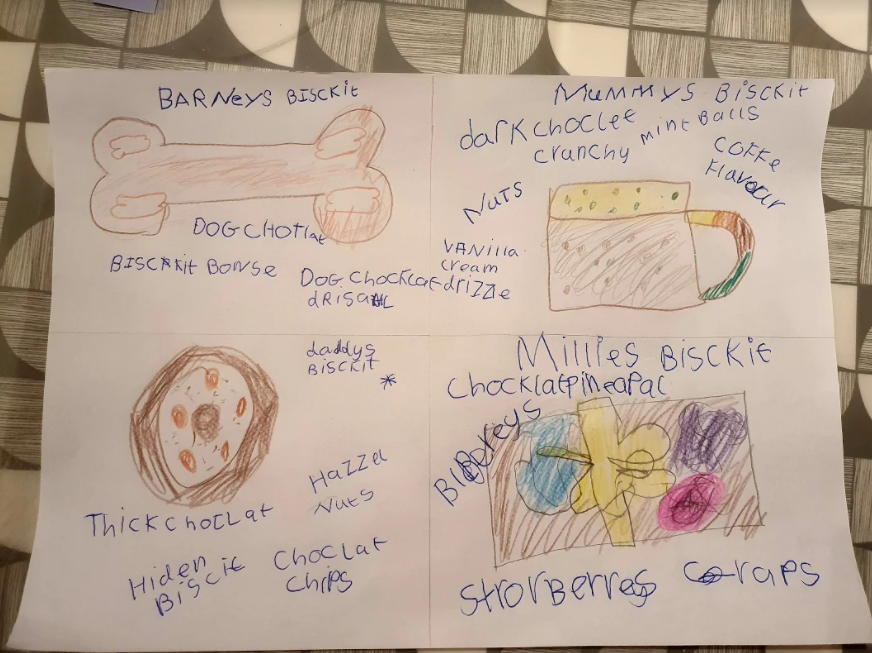 BARNeys BISCKit
DOG CHOTlat
BISCKKit BONSe
DOG CHOCKLAt
dRISAL
MuMMYS BiSCKit
darkchoclee
crunchy
mint Balls
COFFe
Flavour
NUTS
VANilla
cream
drizze
daddys
BISCKit
*
HaZZel
NutS
Thickchoclat
Hiden
Biscit
CHOCLAt
CHiPS
Millies BISCKit
Chocklatpineapal
StrorBerreys Graps